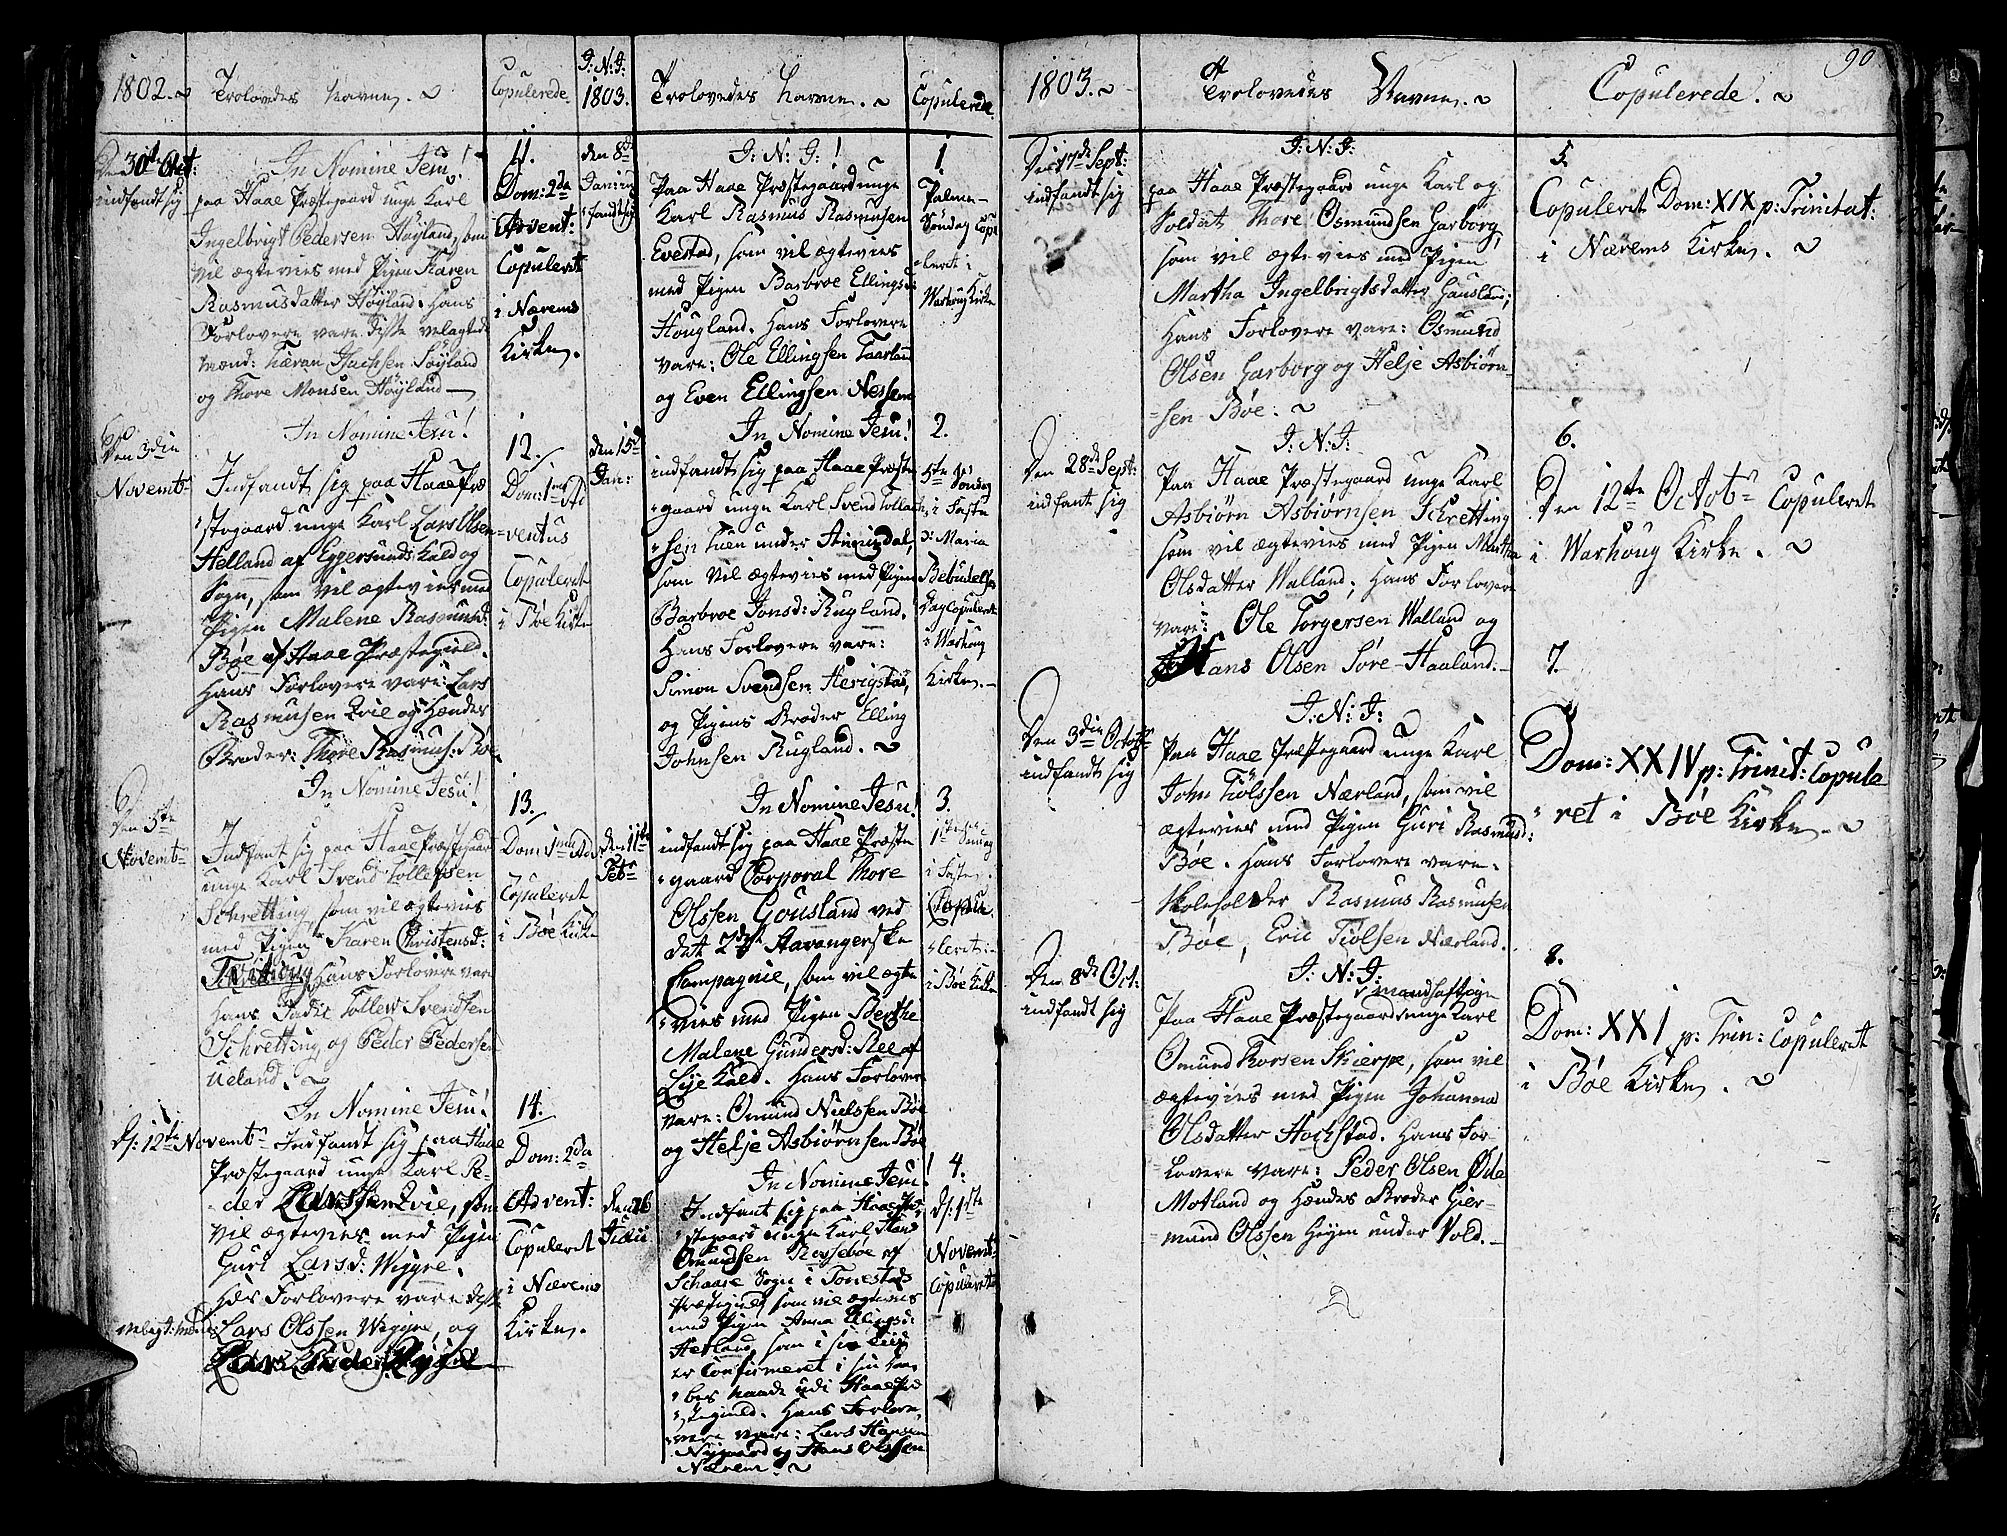 1802.
Trolovedes Navne.
Copulerede.
Den 30te Oct:
indfandt sig
In Nomine Jesu!
paa Haae Præstegaard unge Karl
Ingelbrigt Pedersen Høyland, som
vil ægtevies med Pigen Karen
Rasmusdatter Høyland. Hans
Forlovere vare disse velagtede
Mænd:
og Thore Monsen Høyland
11.
Dom: 2da
Advent:
Copuleret
i Nærems
Kirke.
Den 3die
Novembr
In Nomine Jesu!
Indfandt sig paa Haae Præ
stegaard unge Karl Lars Olsen
Helland af Eggersunds Kald og
Sogn, som vil ægtevies med
Pigen Malene Rasmusd:
Bøe af Haae Præstegield.
Hans Forlovere vare: Lars
Rasmusen Qvie og Hendes
Broder: Thore Rasmus: Bøe.
12.
Dom: 1ma Ad
ventus
Copuleret
i Bøe Kirke
Den 5te
Novembr
In Nomine Jesu!
Indfant sig paa Haae Præstegaard
unge Karl Svend Tollefsen
Schretting, som vil ægtevies
med Pigen Karen Christensd:
Hans Forlovere vare
hans Fader Tollew Svendsen
Schretting og Peder Pedersen
Ueland.
13.
Dom: 1ma Adv.
Copuleret
i Bøe Kirke
D: 12te Novembr
In Nomine Jesu!
Indfandt sig paa Haae
Præstegaard unge Karl Pe-
der Larssen Qvie, som
vil ægtevies med Pigen
Guri Larsd: Wiggre.
Hans Forlovere vare disse
velagt: Mænd: Lars Olssen Wiggre, og
14.
Dom: 2da
Advent:
Copuleret
i Nærems
Kirke.
I: N: I:
1803.
Trolovedes Navne.
Copulerede
den 8de
Jan: ind
fandt sig
I: N: I:!
Paa Haae Præstegaard unge
Karl Rasmus Rasmusen
Evestad, som vil ægtevies
med Pigen Barbroe Ellingsd:
Hougland. Hans Forlovere
vare: Ole Ellingsen Taarland
og Even Ellingsen Nessem
1
Palme-
Søndag Copu
leret i
Warhoug Kirke
den 15de
Jan:
In Nomine Jesu!
indfandt sig paa Haae Præste
gaard unge Karl Svend Tollach
sen Tuen under
som vil ægtevies med Pigen
Barbroe Jonsd: Rugland.
Hans Forlovere vare:
Simon Svendsen Herigstad,
og Pigens Broder Elling
Johnsen Rugland.
2.
5te Søndag
i Faste
Maria
Bebudelses
Dag Copuleret
i Warhoug
Kirke.
den 11te
Febr
In Nomine Jesu!
indfandt sig paa Haae Præste
gaard Corporal Thore
Olssen Gousland ved
det 2det Stavangerske
Compagnie, som vil ægte
vies med Pigen Berthe
Malene Gundersd: Ree af
Lye Kald. Hans Forlovere
vare: Omund Nielssen Bøe
og Helje Asbiørnsen Bøe
3.
1ste Søndag
i Faste.
Copu
leret
i Bøe Kirke
den 26
Julii
In Nomine Jesu!
Indfant sig paa Haae Præ
stegaard unge Karl Hans
Omundsen Røyseboe af
Schaare Sogn i Tonestads
Præstegield, som vil ægtevies
med Pigen Anna Elingsd:
Hetland, som i sin Tiid
er Confirmeret i sin Daa-
bes Naade udi Haae Præ
stegield. Hans Forlo-
vere vare: Lars Hansen
Nygaard og Hans Olssen
Nærem.
4.
D: 1ste
Novembr
Copuleret
1803.
Trolovedes Navne.
Copulerede.
90
Den 17de Sept:
indfandt sig
I: N: I:
paa Haae Præstegaard unge Karl og
Soldat Thore Osmundsen Garborg,
som vil ægtevies med Pigen
Martha Ingelbrigtsdatter Hausland;
Hans Forlovere vare: Osmund
Olsen Garborg og Helje Asbiørn-
sen Bøe.
5.
Copuleret Dom: XIX p: Trinitat:
i Nærems Kirke.
Den 28de Sept:
indfant sig
I: N: I:
Paa Haae Præstegaard unge Karl
Asbiørn Asbiørnsen Schretting
som vil ægtevies med Pigen Martha
Olsdatter Walland; Hans Forlovere
vare: Ole Torgersen Walland og
Hans Olsen Søre-Haaland.
6.
Den 12te Octobr Copuleret
i Warhoug Kirke.
Den 3die Octobr
indfandt sig
I: N: I:
Paa Haae Præstegaard unge Karl
John Tiølssen Nærland, som vil
ægtevies med Pigen Guri Rasmusd:
Bøe. Hans Forlovere vare.
Skoleholder Rasmus Rasmusen
Bøe, Eric Tiølsen Nærland.
7.
Dom: XXIV p: Trinit: Copule
ret i Bøe Kirke.
Den 8de Oct:
indfandt sig
I: N: I:
Paa Haae Præstegaard unge Karl
Omund Torsen Skierpe, som vil
ægtevies med Pigen Johanna
Olsdatter Hochstad. Hans For-
lovere vare: Peder Olsen Øde
Motland og Hendes Broder Gier-
mund Olssen Høyen under Vold.
8.
Dom: XXI p: Trin: Copuleret
i Bøe Kirke.